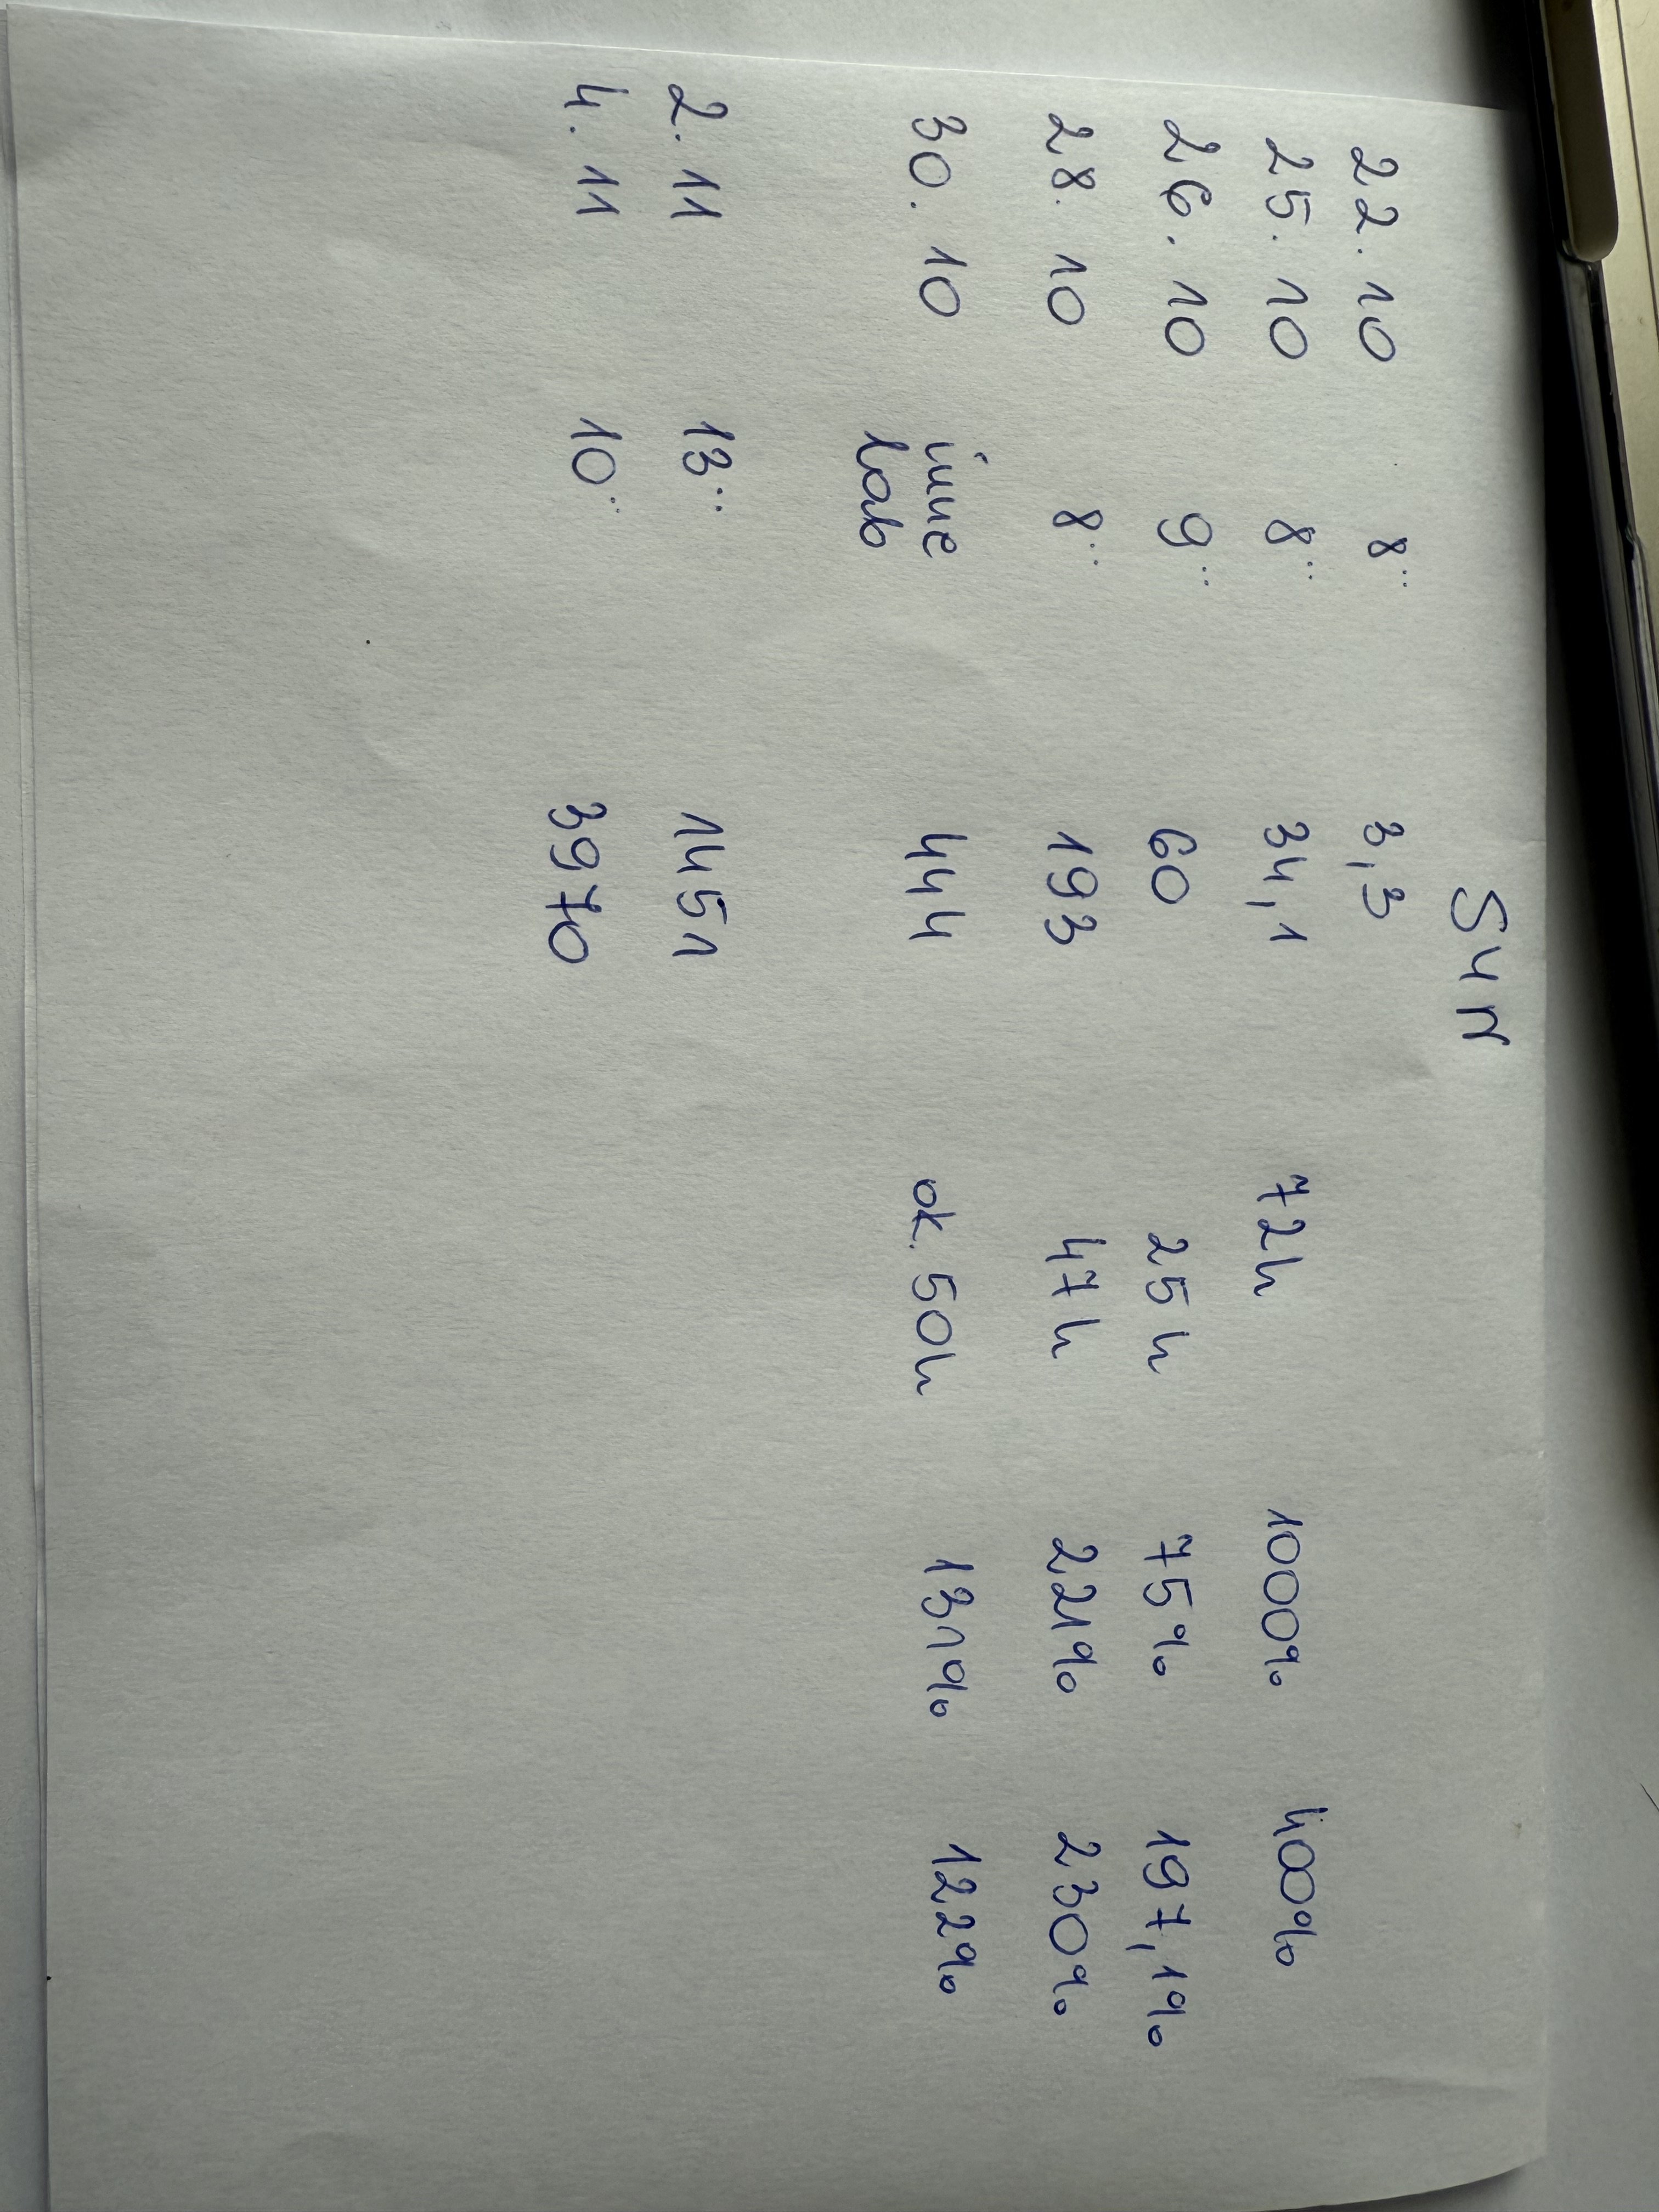 SYN
22.10 8:: 3,3
25.10 8:: 34,1 72h 1000% 400%
26.10 9:: 60 25h 75% 197,1%
28.10 8:: 193 47h 221% 230%
30.10 inne lab 444 ok. 50h 131% 122%
2.11 13:: 1451
4.11 10:: 3970